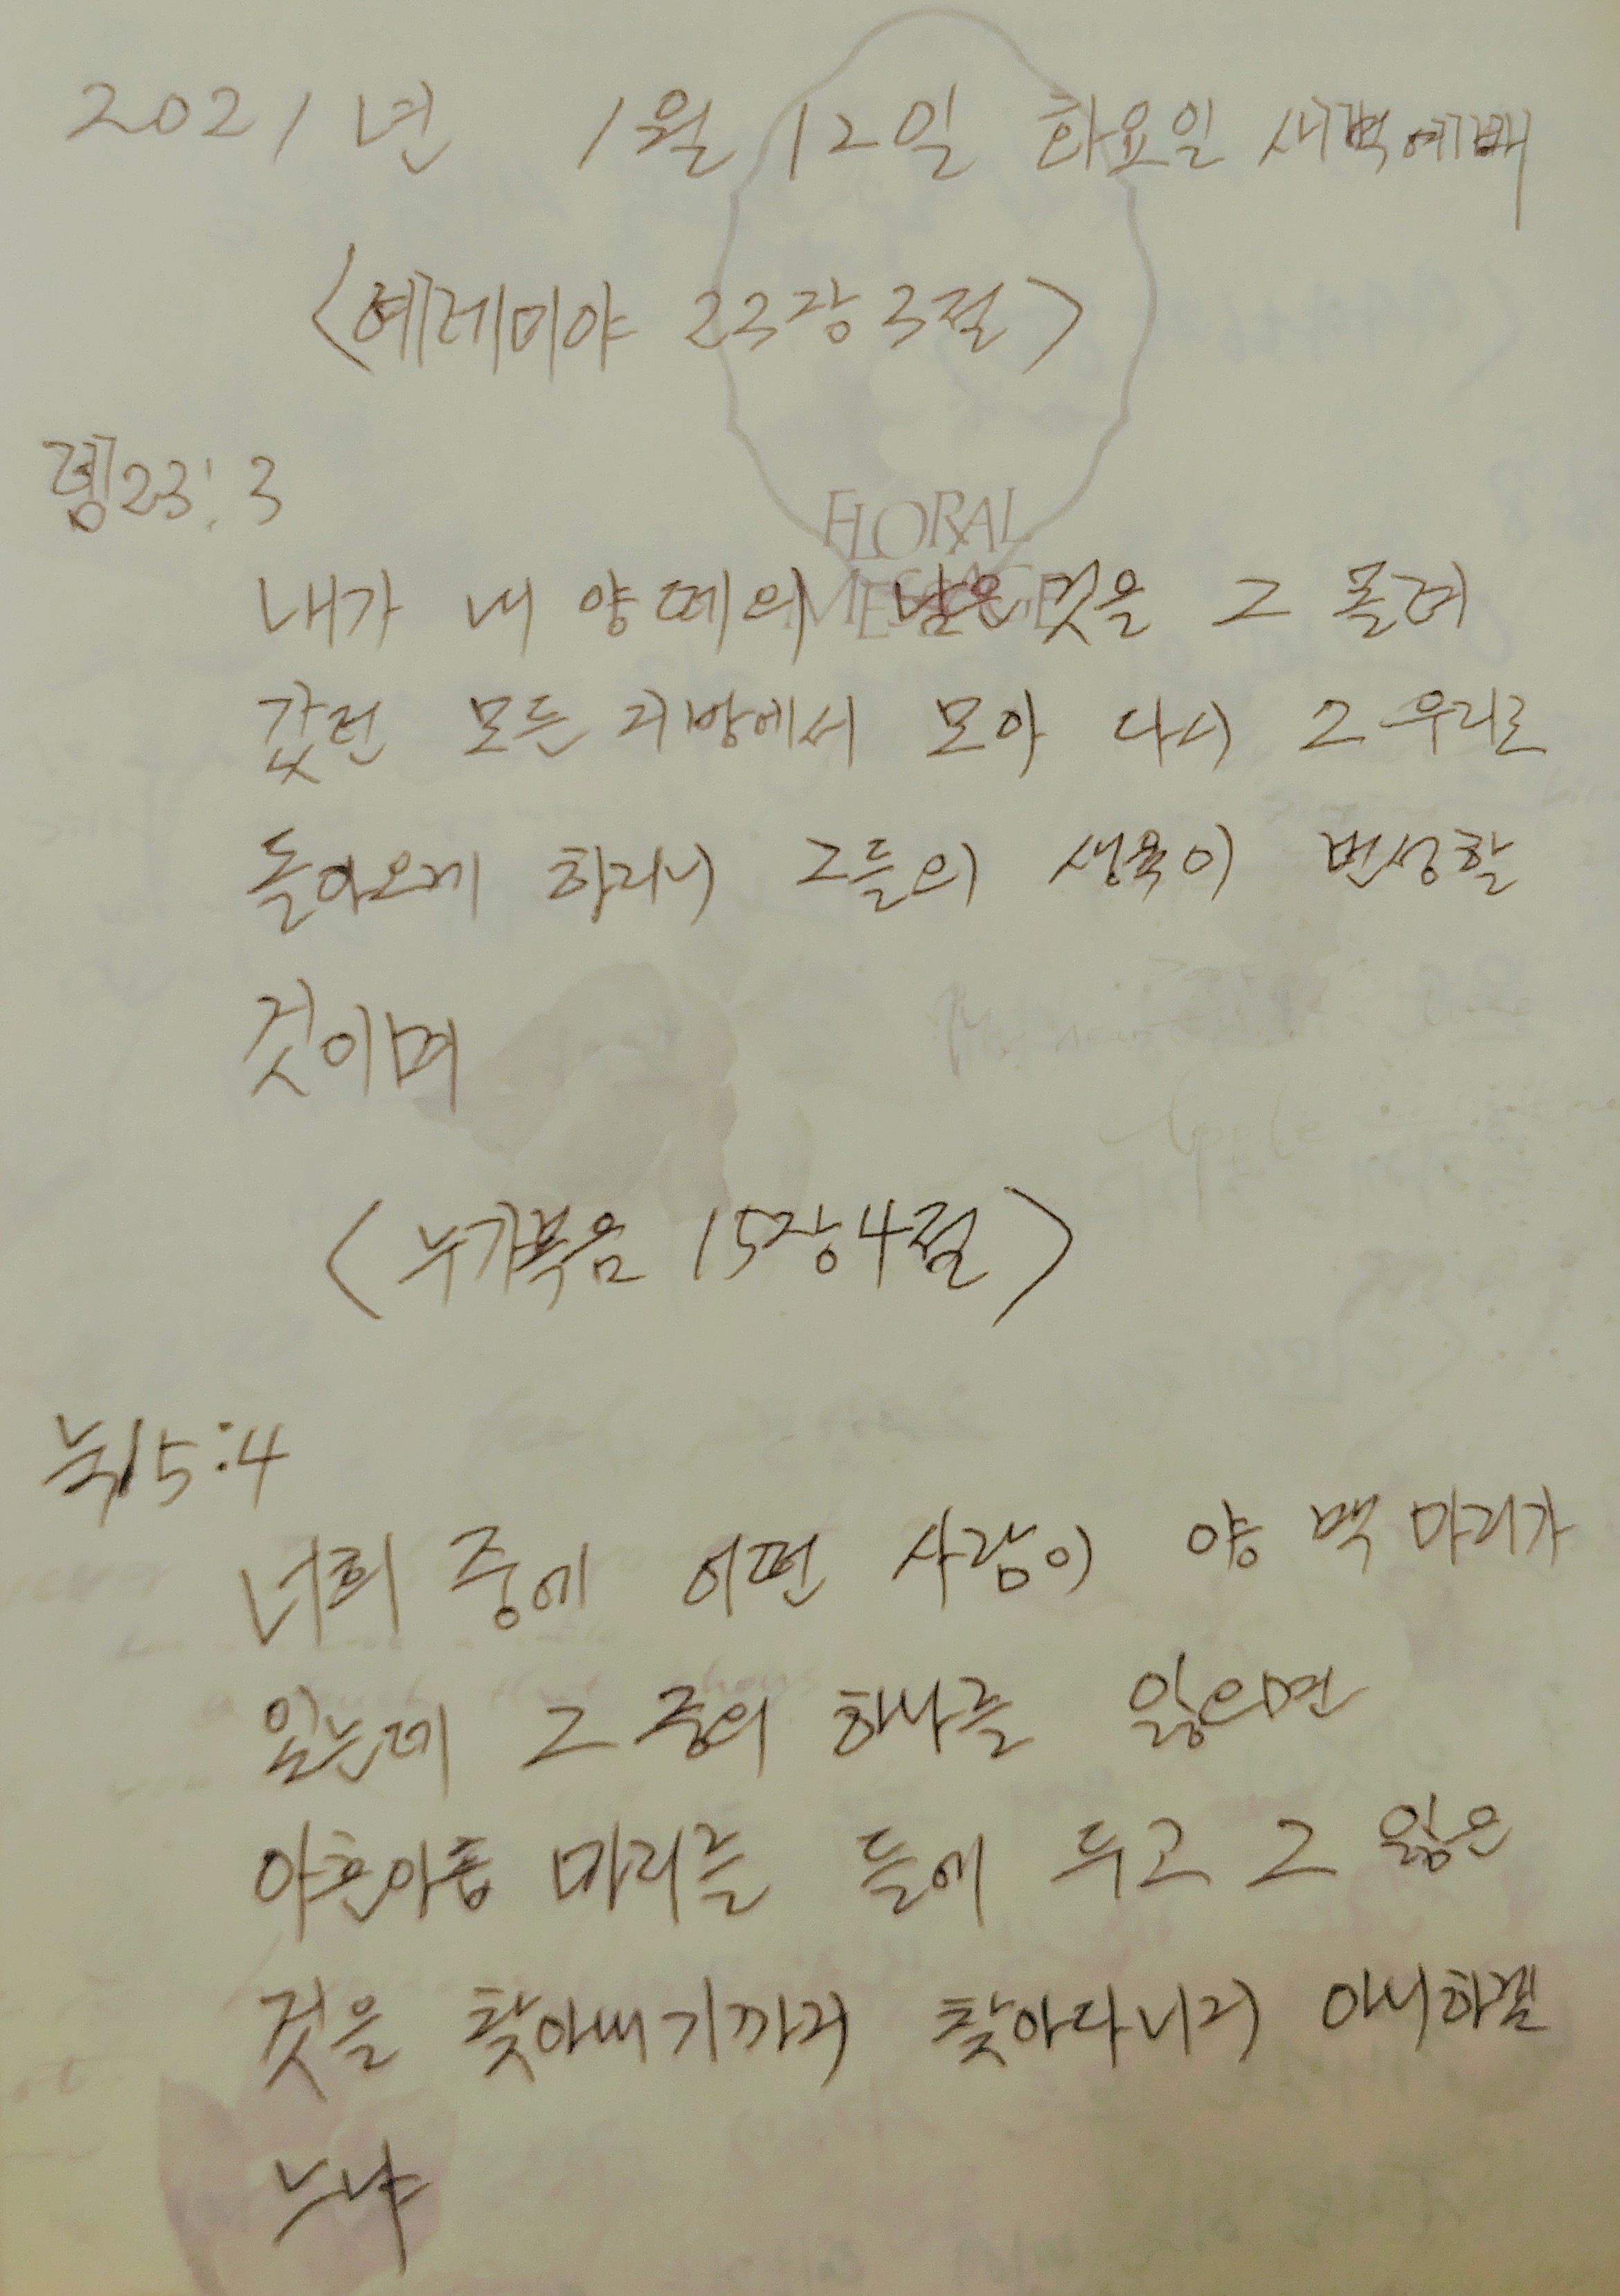 2021년 1월 12일 화요일 새벽예배
<예레미야 23장 3절>
렘23:3
FLORAL
MESSAGE
내가 내 양 떼의 남은 것을 그 몰려
갔던 모든 지방에서 모아 다시 그 우리로
돌아오게 하리니 그들의 생육이 번성할
것이며
<누가복음 15장 4절>
눅15:4
너희 중에 어떤 사람이 양 백 마리가
있는데 그 중의 하나를 잃으면
아흔아홉 마리를 들에 두고 그 잃은
것을 찾아내기까지 찾아다니지 아니하겠
느냐